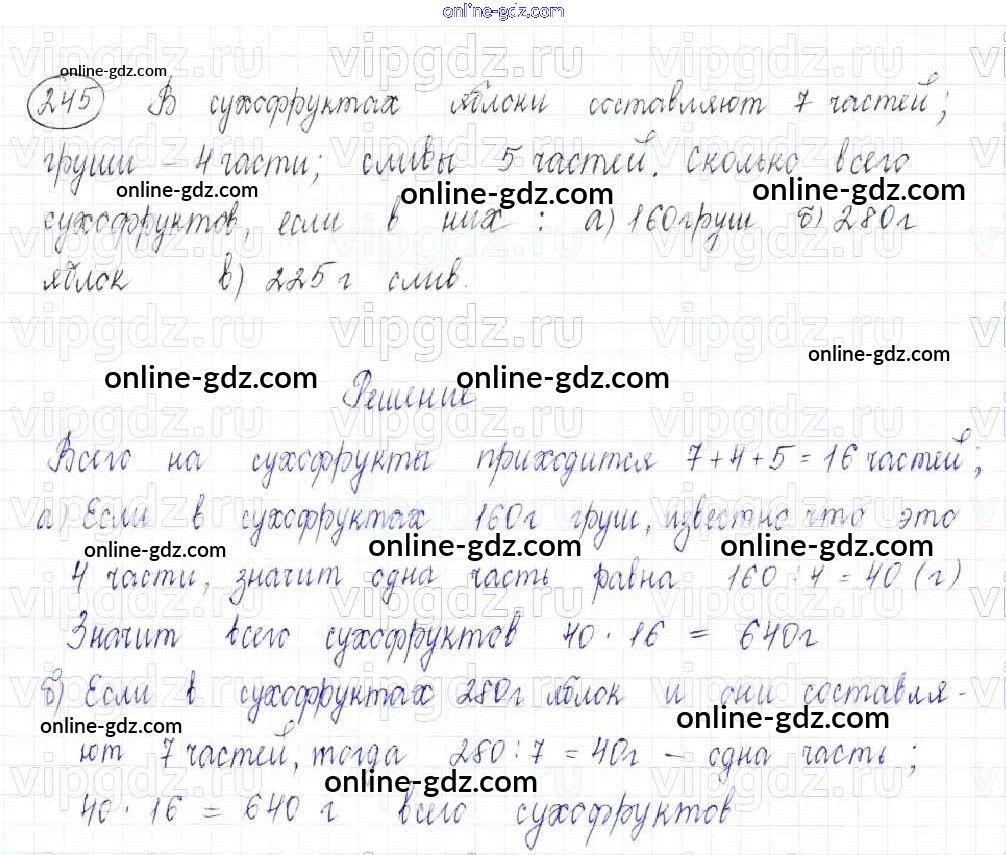 online-gdz.com
online-gdz.com
245 В сухофруктах яблоки составляют 7 частей;
груши – 4 части; сливы 5 частей. Сколько всего
online-gdz.com online-gdz.com online-gdz.com
сухофруктов, если в них : а) 160 груш б) 280г
яблок в) 225 г слив.
vipgdz.ru vipgdz.ru vipgdz.ru
online-gdz.com
online-gdz.com online-gdz.com
Решение
vipgdz.ru vipgdz.ru vipgdz.ru
Всего на сухофрукты приходится 7+4+5=16 частей;
а) Если в сухофруктах 160г груш, известно что это
online-gdz.com online-gdz.com online-gdz.com
4 части, значит одна часть равна 160 : 4 = 40 (г)
Значит всего сухофруктов 40 · 16 = 640г
б) Если в сухофруктах 280г яблок и они составля-
online-gdz.com online-gdz.com
ют 7 частей, тогда 280 : 7 = 40г – одна часть;
online-gdz.com
40 · 16 = 640 г всего сухофруктов